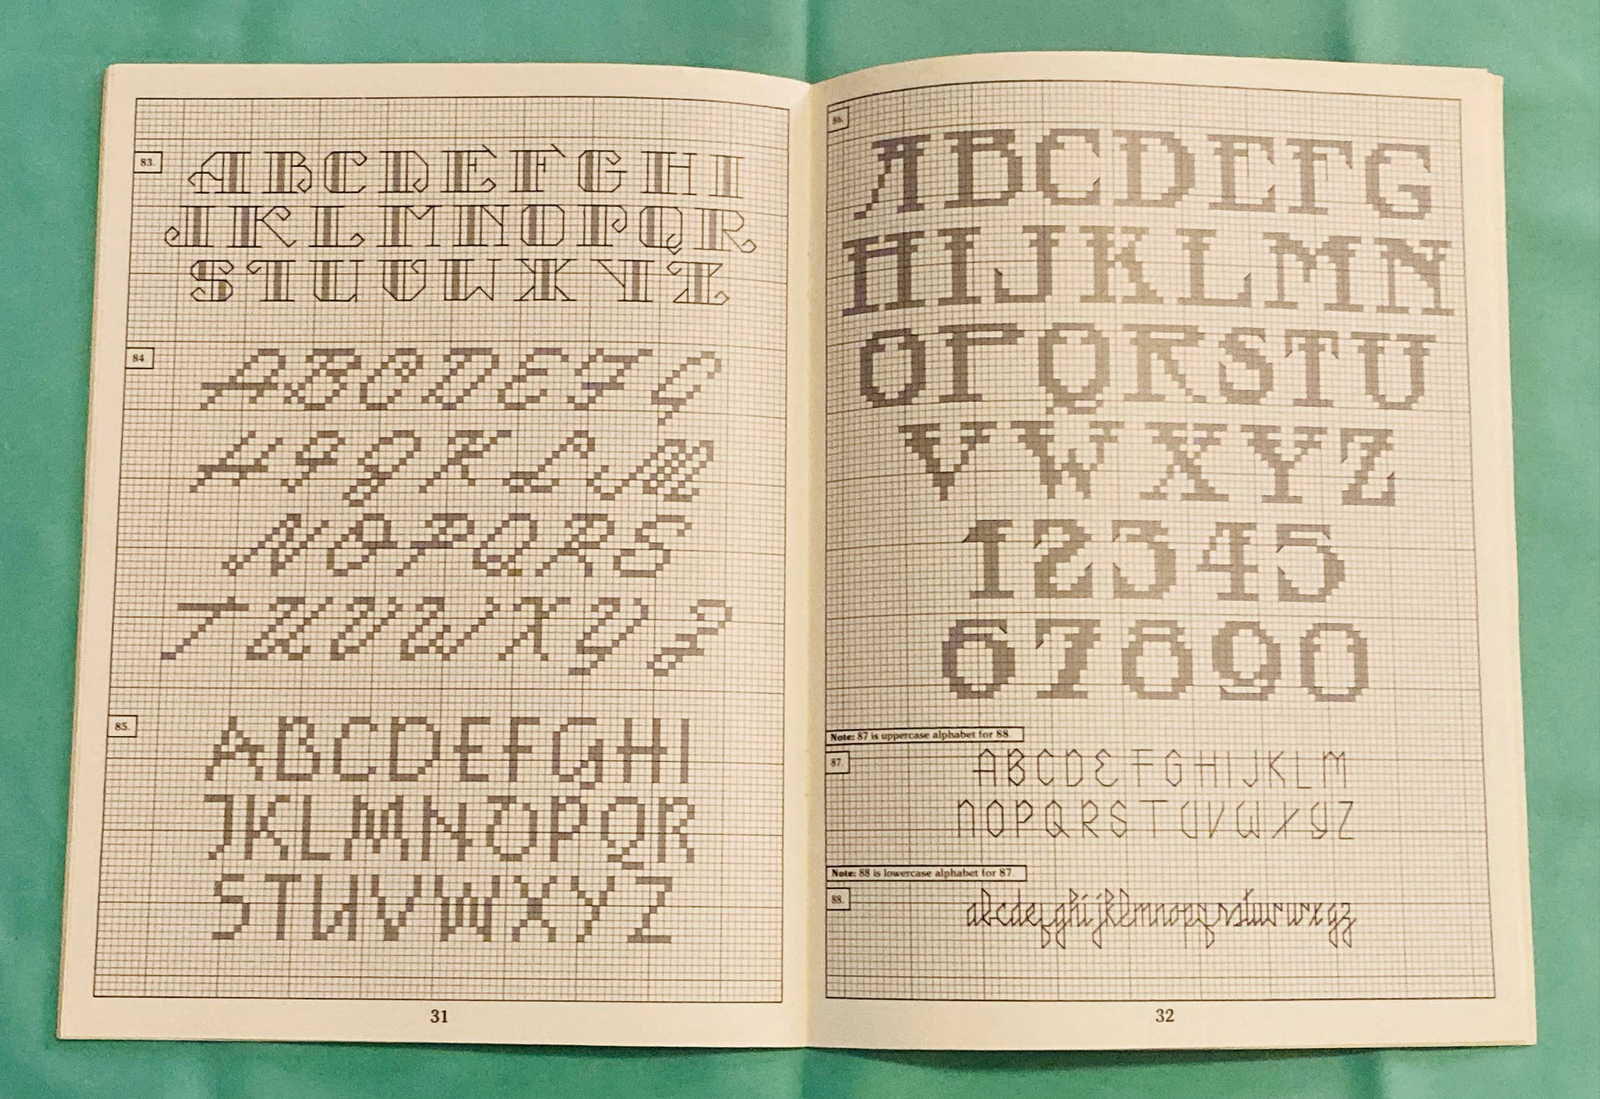 83.
ABCDEFGHI
JKLMNOPQR
STUVWXYZ
84.
ABCDEFG
HIJKLM
NOPQRS
TUVWXYZ
85.
ABCDEFGHI
JKLMNOPQR
STUVWXYZ
31
86.
ABCDEFG
HIJKLMN
OPQRSTU
VWXYZ
12345
67890
Note: 87 is uppercase alphabet for 88.
87.
ABCDEFGHIJKLM
NOPQRSTUVWXYZ
Note: 88 is lowercase alphabet for 87.
88.
abcdefghijklmnopqrstuvwxyz
32